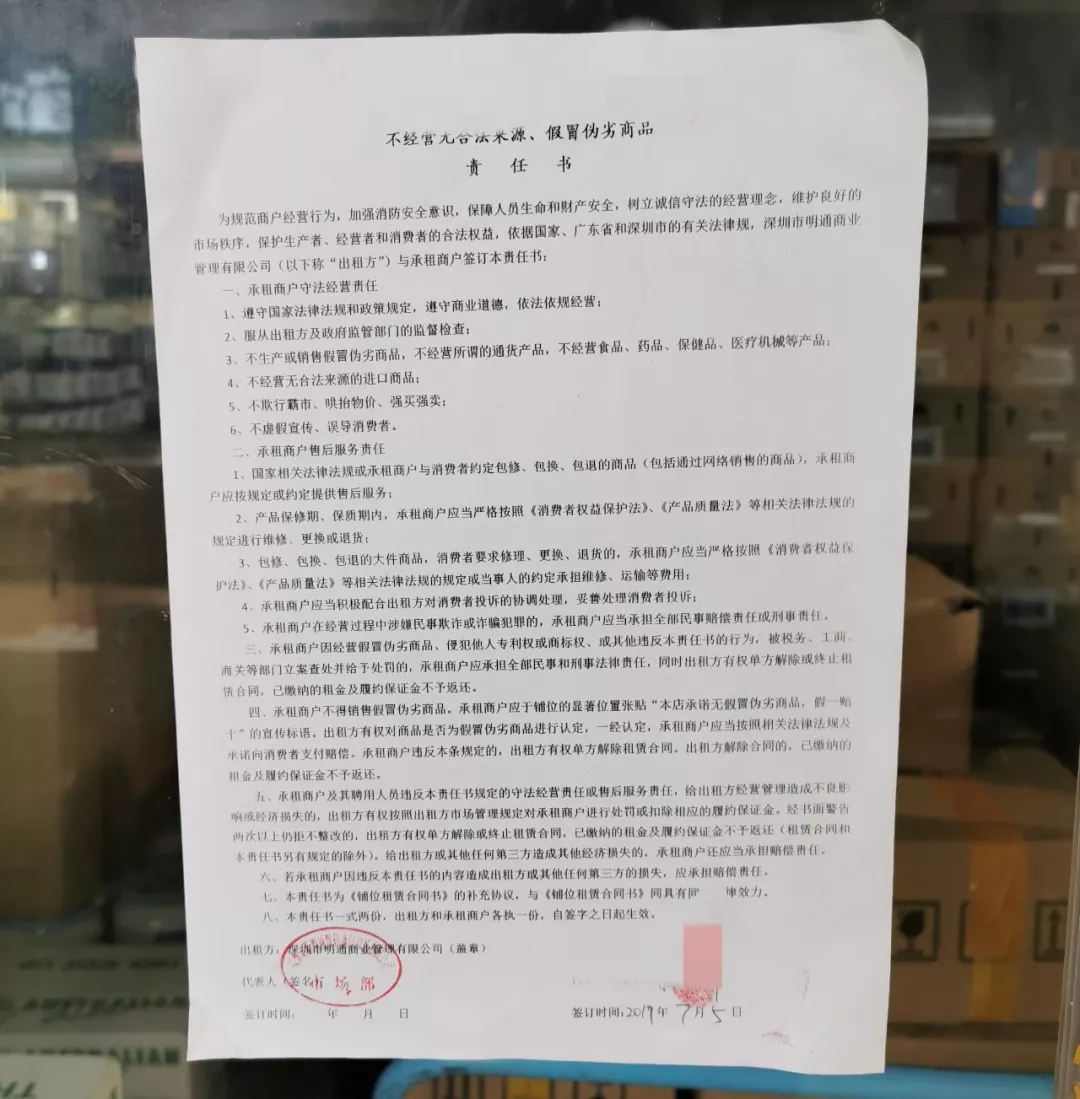 不经营无合法来源、假冒伪劣商品
责 任 书
为规范商户经营行为，加强消防安全意识，保障人员生命和财产安全，树立诚信守法的经营理念，维护良好的
市场秩序，保护生产者、经营者和消费者的合法权益，依据国家、广东省和深圳市的有关法律规，深圳市明通商业
管理有限公司（以下称“出租方”）与承租商户签订本责任书：
一、承租商户守法经营责任
1、遵守国家法律法规和政策规定，遵守商业道德，依法依规经营；
2、服从出租方及政府监管部门的监督检查；
3、不生产或销售假冒伪劣商品，不经营所谓的通货产品，不经营食品、药品、保健品、医疗机械等产品；
4、不经营无合法来源的进口商品；
5、不欺行霸市、哄抬物价、强买强卖；
6、不虚假宣传、误导消费者。
二、承租商户售后服务责任
1、国家相关法律法规或承租商户与消费者约定包修、包换、包退的商品（包括通过网络销售的商品），承租商
户应按规定或约定提供售后服务；
2、产品保修期、保质期内，承租商户应当严格按照《消费者权益保护法》、《产品质量法》等相关法律法规的
规定进行维修、更换或退货；
3、包修、包换、包退的大件商品，消费者要求修理、更换、退货的，承租商户应当严格按照《消费者权益保
护法》、《产品质量法》等相关法律法规的规定或当事人的约定承担维修、运输等费用；
4、承租商户应当积极配合出租方对消费者投诉的协调处理，妥善处理消费者投诉；
5、承租商户在经营过程中涉嫌民事欺诈或诈骗犯罪的，承租商户应当承担全部民事赔偿责任或刑事责任。
三、承租商户因经营假冒伪劣商品、侵犯他人专利权或商标权、或其他违反本责任书的行为，被税务、工商、
海关等部门立案查处并给予处罚的，承租商户应承担全部民事和刑事法律责任，同时出租方有权单方解除或终止租
赁合同，已缴纳的租金及履约保证金不予返还。
四、承租商户不得销售假冒伪劣商品。承租商户应于铺位的显著位置张贴“本店承诺无假冒伪劣商品，假一赔
十”的宣传标语。出租方有权对商品是否为假冒伪劣商品进行认定，一经认定，承租商户应当按照相关法律法规及
承诺向消费者支付赔偿。承租商户违反本条规定的，出租方有权单方解除租赁合同。出租方解除合同的，已缴纳的
租金及履约保证金不予返还。
五、承租商户及其聘用人员违反本责任书规定的守法经营责任或售后服务责任，给出租方经营管理造成不良影
响或经济损失的，出租方有权按照出租方市场管理规定对承租商户进行处罚或扣除相应的履约保证金。经书面警告
两次以上仍拒不整改的，出租方有权单方解除或终止租赁合同，已缴纳的租金及履约保证金不予返还（租赁合同和
本责任书另有规定的除外）。给出租方或其他任何第三方造成其他经济损失的，承租商户还应当承担赔偿责任。
六、若承租商户因违反本责任书的内容造成出租方或其他任何第三方的损失，应承担赔偿责任。
七、本责任书为《铺位租赁合同书》的补充协议，与《铺位租赁合同书》同具有同 律效力。
八、本责任书一式两份，出租方和承租商户各执一份，自签字之日起生效。
出租方：深圳市明通商业管理有限公司（盖章）
代表人（签名
市场部
签订时间： 年 月 日
签订时间：2019年7月5日